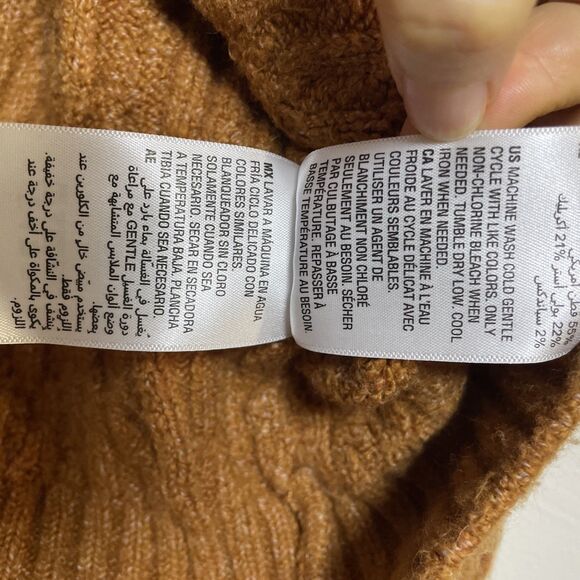 US MACHINE WASH COLD GENTLE
CYCLE WITH LIKE COLORS. ONLY
NON-CHLORINE BLEACH WHEN
NEEDED. TUMBLE DRY LOW. COOL
IRON WHEN NEEDED.
CA LAVER EN MACHINE À L'EAU
FROIDE AU CYCLE DÉLICAT AVEC
COULEURS SEMBLABLES
UTILISER UN AGENT DE
BLANCHIMENT NON CHLORÉ
SEULEMENT AU BESOIN. SÉCHER
PAR CULBUTAGE À BASSE
TEMPÉRATURE. REPASSER À
BASSE TEMPÉRATURE AU BESOIN
MX LAVAR A MÁQUINA EN AGUA
FRÍA CICLO DELICADO CON
COLORES SIMILARES.
BLANQUEADOR SIN CLORO
SOLAMENTE CUANDO SEA
NECESARIO. SECAR EN SECADORA
A TEMPERATURA BAJA. PLANCHA
TIBIA CUANDO SEA NECESARIO.
AE
تغسل في الغسالة بماء بارد على
دورة الغسيل GENTLE مع مراعاة
وضع ألوان الملابس المتشابهة مع
بعضها.
يستخدم مبيّض خالٍ من الكلورين عند
اللزوم فقط.
ينشف في النشّافة على درجة خفيفة.
يكوى بالمكواة على أخف درجة عند
اللزوم.
55% قطن أمريكي
21% أكريليك
22% بولي أستر
2% سباندكس